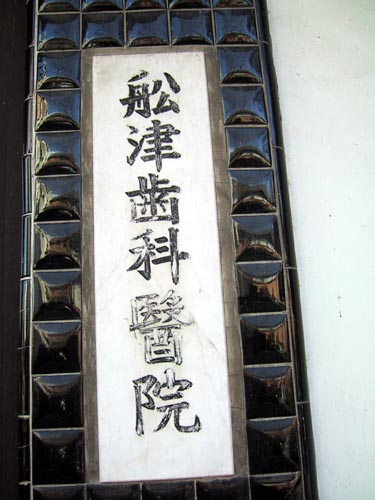 船津歯科醫院